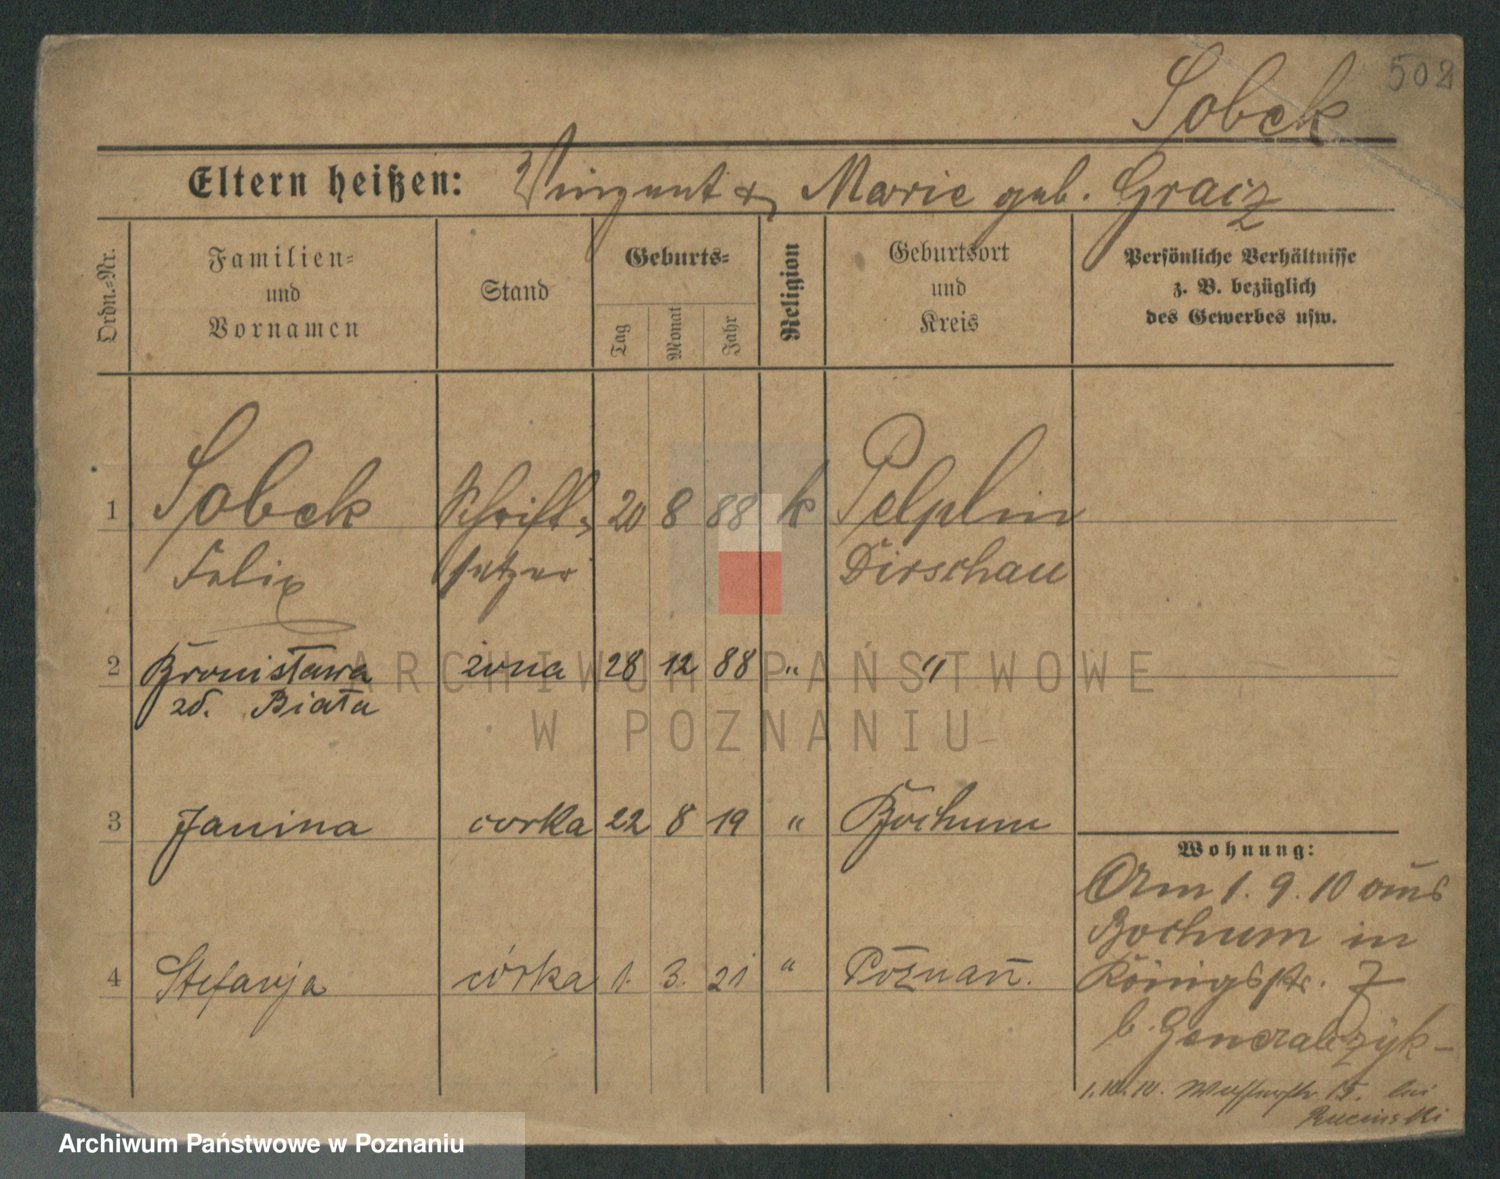 502
Sobek
Eltern heißen: Vinzent & Marie geb. Gracz
Ordn.-Nr.
Familien-
und
Vornamen
Stand
Geburts-
Tag
Monat
Jahr
Religion
Geburtsort
und
Kreis
Persönliche Verhältnisse
z. B. bezüglich
des Gewerbes usw.
1 Sobek Schrift- 20 8 88 k Pelplin
Felix setzer Dirschau
2 Bronisława żona 28 12 88 " "
zd. Biała
3 Janina corka 22 8 19 " Bochum
4 Stefanja córka 1. 3. 21 " Poznań.
Wohnung:
Am 1. 9. 10 aus
Bochum in
Königsstr. 7
b. Generalczyk-
1.10.10. 15. bei
Rucinski
ARCHIWUM PAŃSTWOWE
W POZNANIU
Archiwum Państwowe w Poznaniu